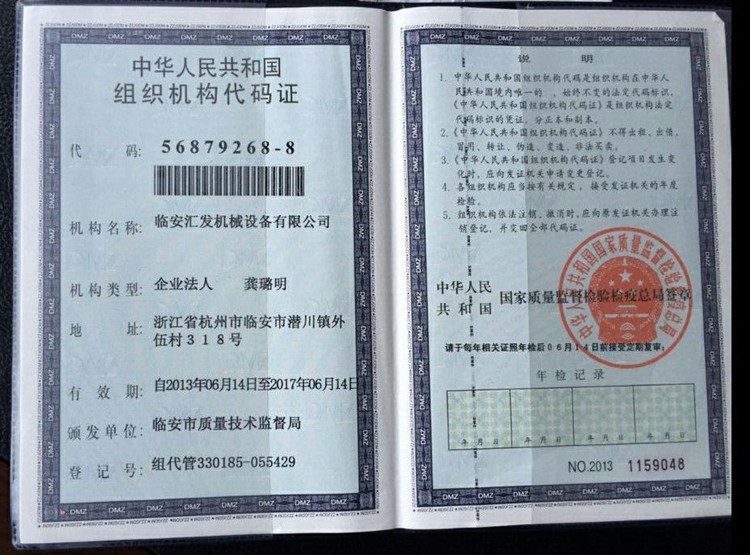 中华人民共和国
组织机构代码证
代 码: 56879268-8
机构名称: 临安汇发机械设备有限公司
机构类型: 企业法人 龚璐明
地 址: 浙江省杭州市临安市潜川镇外
伍村318号
有 效 期: 自2013年06月14日至2017年06月14日
颁发单位: 临安市质量技术监督局
登 记 号: 组代管330185-055429
说 明
1. 中华人民共和国组织机构代码是组织机构在中华人
民共和国境内唯一的、始终不变的法定代码标识,
《中华人民共和国组织机构代码证》是组织机构法定
代码标识的凭证,分正本和副本。
2. 《中华人民共和国组织机构代码证》不得出租、出借、
冒用、转让、伪造、变造、非法买卖。
3. 《中华人民共和国组织机构代码证》登记项目发生变
化时,应向发证机关申请变更登记。
4. 各组织机构应当按有关规定,接受发证机关的年度
检验。
5. 组织机构依法注销、撤消时,应向原发证机关办理注
销登记,并交回全部代码证。
中华人民
共和国 国家质量监督检验检疫总局签章
中华人民共和国国家质量监督检验检疫总局
请于每年相关证照年检后06月14日前接受定期复审:
年检记录
年 月 日 年 月 日 年 月 日 年 月 日
NO.2013 1159048